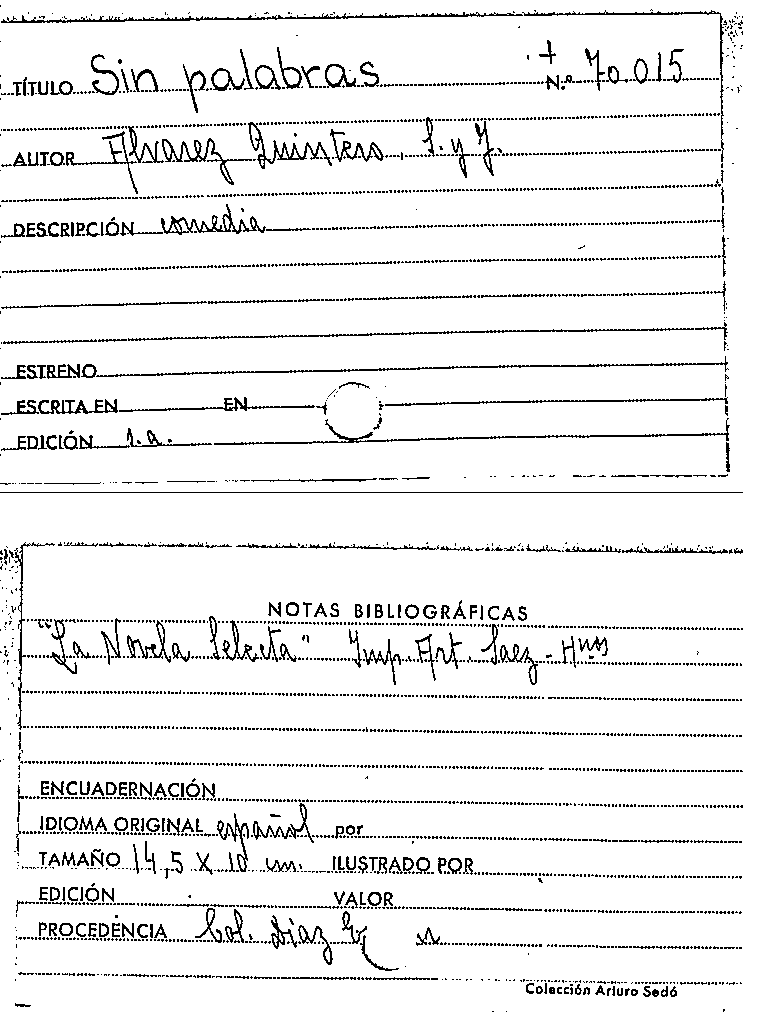 TÍTULO Sin palabras + N.º 70.015
AUTOR Alvarez Quintero, S. y J.
DESCRIPCIÓN comedia
ESTRENO
ESCRITA EN EN
EDICIÓN 1.a.
NOTAS BIBLIOGRÁFICAS
"La Novela Selecta" Imp. Art. Saez-Hnos
ENCUADERNACIÓN
IDIOMA ORIGINAL español por
TAMAÑO 14,5 X 10 cm. ILUSTRADO POR
EDICIÓN VALOR
PROCEDENCIA Col. Diaz
Colección Arturo Sedó